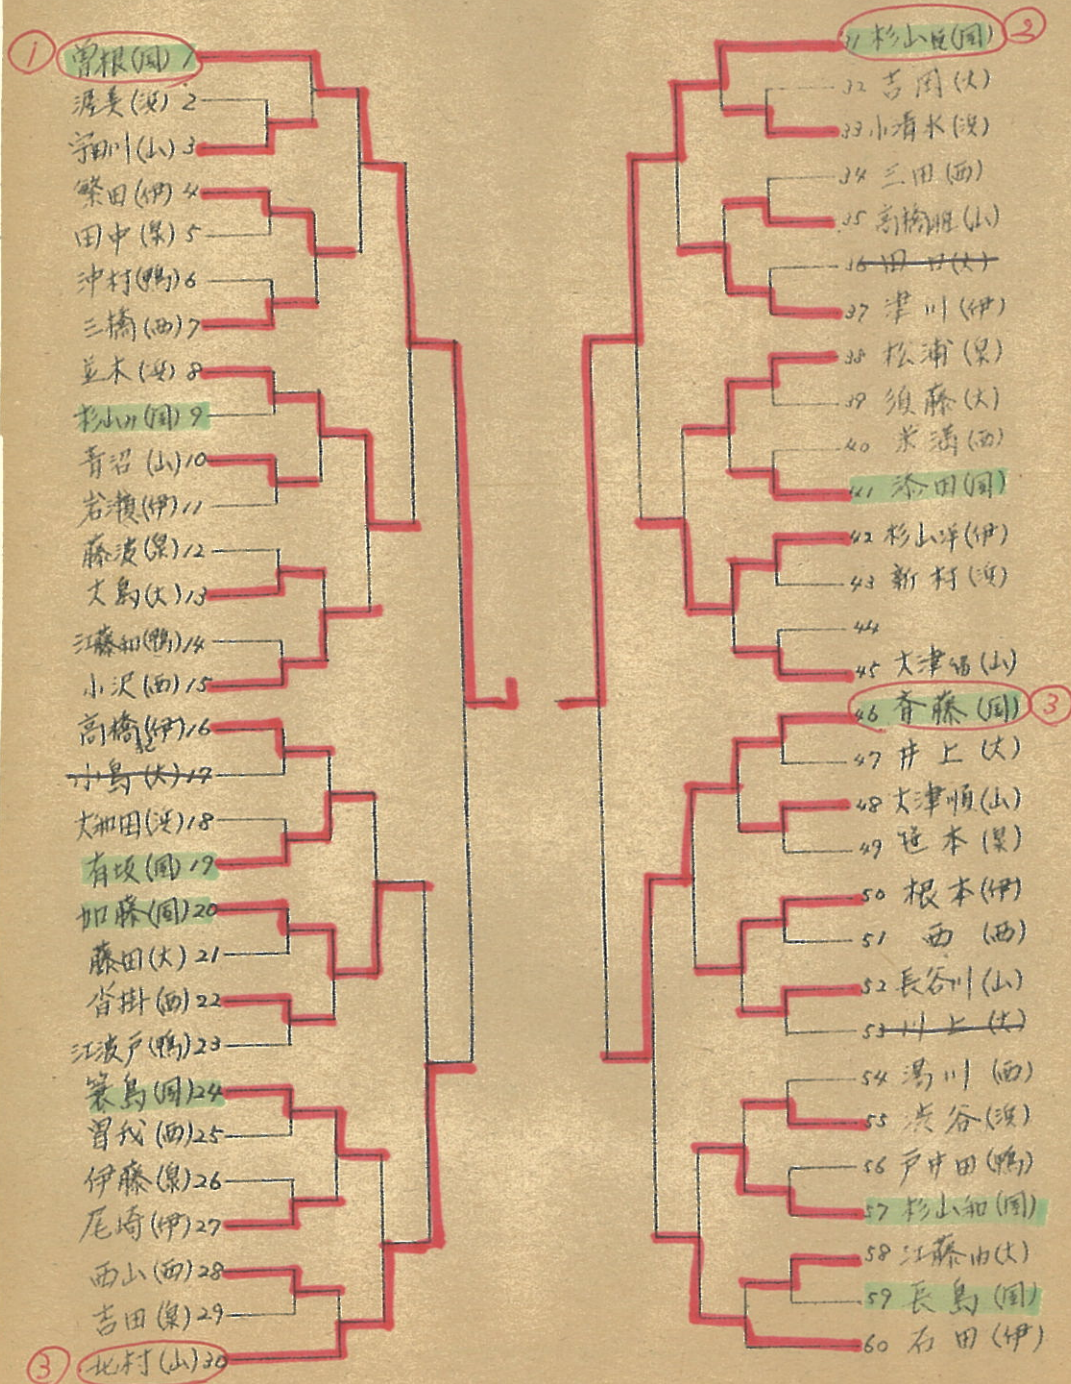 ① 曽根(国) 1
渥美(浜) 2
宇田川(山) 3
繁田(伊) 4
田中(泉) 5
沖村(鴨) 6
三橋(西) 7
並木(浜) 8
杉山(国) 9
青沼(山) 10
岩瀬(伊) 11
藤波(泉) 12
大島(大) 13
江藤和(鴨) 14
小沢(西) 15
高橋(伊) 16
小島(大) 17
大和田(浜) 18
有坂(国) 19
加藤(国) 20
藤田(大) 21
沓掛(西) 22
江波戸(鴨) 23
簑島(国) 24
曽我(西) 25
伊藤(泉) 26
尾崎(伊) 27
西山(西) 28
吉田(泉) 29
③ 北村(山) 30
31 杉山(国) 2
32 吉岡(大)
33 小清水(浜)
34 三田(西)
35 高橋(山)
36 田口(大)
37 津川(伊)
38 松浦(泉)
39 須藤(大)
40 米満(西)
41 添田(国)
42 杉山洋(伊)
43 新村(浜)
44
45 大津(山)
46 斉藤(国) ③
47 井上(大)
48 大津順(山)
49 笹本(泉)
50 根本(伊)
51 西(西)
52 長谷川(山)
53 川上(大)
54 湯川(西)
55 渋谷(浜)
56 戸中田(鴨)
57 杉山和(国)
58 江藤由(大)
59 長島(国)
60 石田(伊)